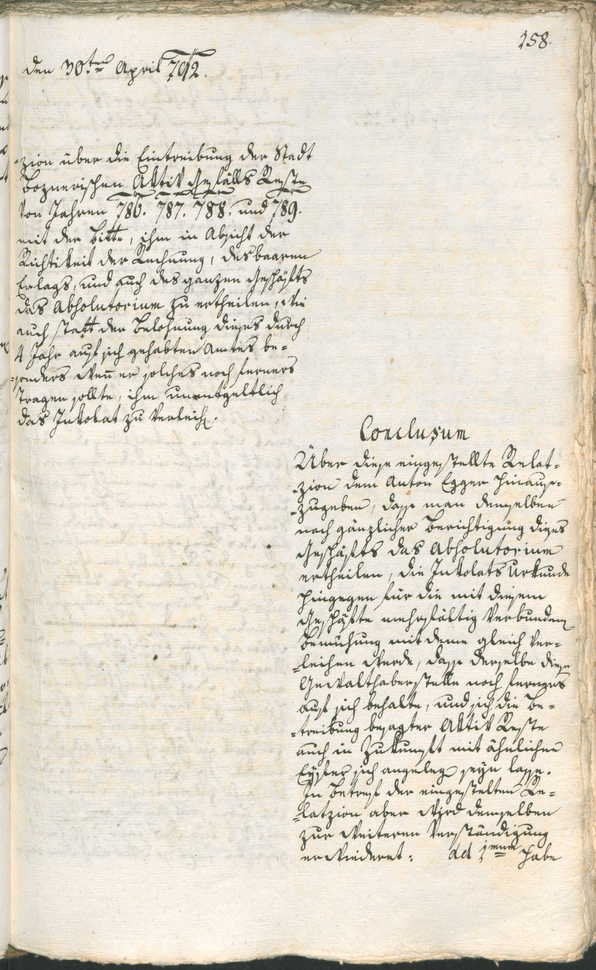 158.
den 30ten April 792.
-zion über die Eintreibung der Stadt
Boznerischen Aktiv Gefälls Reste
von Jahren 786. 787. 788. und 789.
mit der Bitte, ihm in Absicht der
Richtikeit der Rechnung, des baaren
Erlags, und auch des ganzen Geschäfts
das Absolutorium zu ertheilen, wie
auch statt der Belohnung dieses durch
4 Jahr auf sich gehabten Amtes be-
-sonders wenn er solches noch ferners
tragen sollte, ihm unentgeltlich
das Inkolat zu verleihen.
Conclusum
Über diese eingestellte Relat-
-zion dem Anton Egger hinaus-
-zugeben, dass man demselben
nach gänzlicher Berichtigung dieses
Geschäfts das Absolutorium
ertheilen, die Inkolats Urkunde
hingegen für die mit diesem
Geschäfte mehrfältig verbundene
Bemühung mit deme gleich ver-
-leichen werde, dass derselbe diese
Gewalthaberstelle noch ferners
auf sich behalte, und sich die Be-
-treibung besagter Aktiv Reste
auch in Zukunft mit ähnlichen
Eyfer sich angelegt seyn lasse.
In Betref der eingestelten Re-
-latzion aber wird demselben
zur weiteren Verständigung
erwiederet: ad 1mum habe